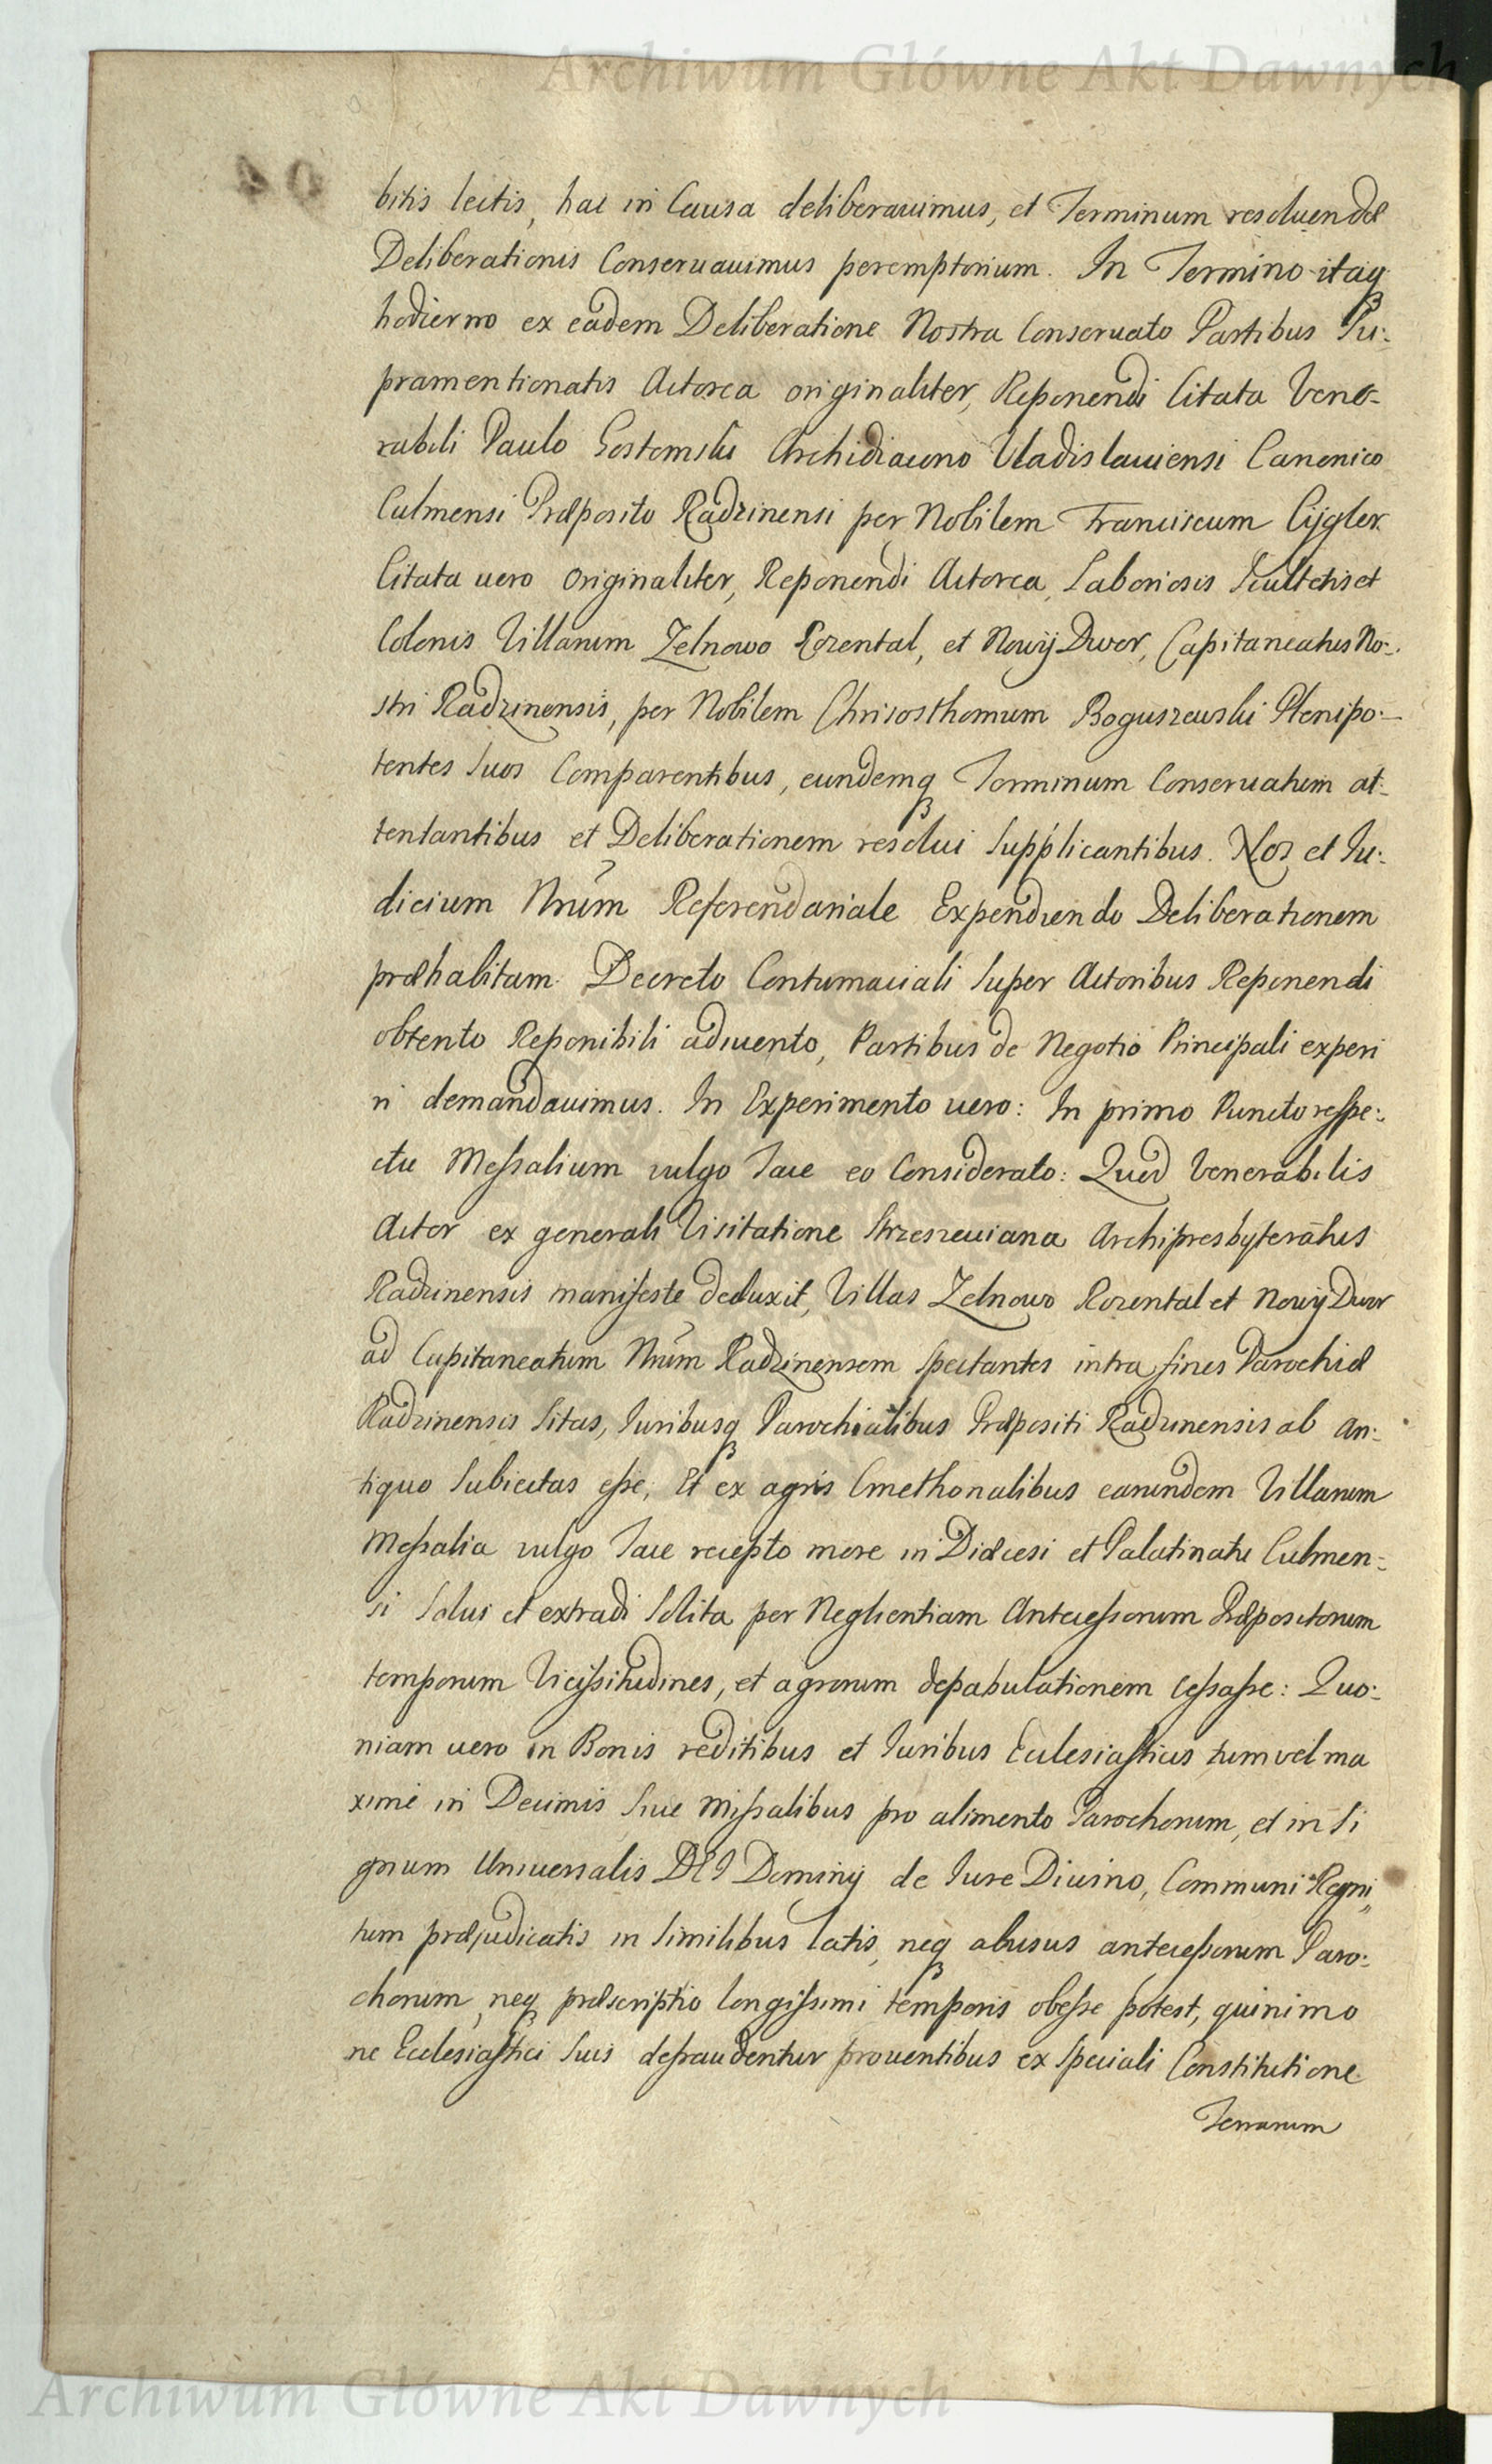 Archiwum Główne Akt Dawnych
bitis lectis, hac in Causa deliberauimus, et Terminum resoluendæ
Deliberationis Conseruauimus peremptorium. In Termino itaq
hodierno ex eadem Deliberatione Nostra Conseruato Partibus Su:
pramentionatis Actorea originaliter, Reponendi Citata Vene-
rabili Paulo Gostomski Archidiacono Vladislauiensi Canonico
Culmensi Præposito Radzinensi per Nobilem Franciscum Cijgler
Citata uero Originaliter, Reponendi Actorea, Laboriosis Scultetis et
Colonis Villarum Zelnowo Rozental, et Nowij Dwor, Capitaneatus No:
stri Radzinensis, per Nobilem Chrisosthomum Boguszewski Plenipo:
tentes Suos Comparentibus, eundemq Terminum Conseruatum at:
tentantibus et Deliberationem resolui Supplicantibus. Nos et Iu:
dicium Nrum Referendariale Expendiendo Deliberationem
præhabitam Decreto Contumaciali Super Actoribus Reponendi
obtento Reponibili adiuento, Partibus de Negotio Principali experi
ri demandauimus. In Experimento uero: In primo Puncto respe:
ctu Messalium vulgo Tace eo Considerato: Quod Venerabilis
Actor ex generali Visitatione Strzeszewiana Archipresbyteratus
Radzinensis manifeste deduxit, Villas Zelnowo Rozental et Nowij Dwor
ad Capitaneatum Nrum Radzinensem Spectantes intra fines Parochiæ
Radzinensis Sitas, Iuribusq Parochialibus Præpositi Radzinensis ab an:
tiquo Subiectas esse, Et ex agris Cmethonalibus earundem Villarum
Messalia vulgo Tace recepto more in Diæcesi et Palatinatu Culmen:
si Solui et extradi Solita per Neglientiam Antecessorum Præpositorum
temporum Vicissitudines, et agrorum depabulationem cessasse: Quo:
niam uero in Bonis reditibus et Iuribus Ecclesiasticis tum vel ma
xime in Decimis Siue Missalibus pro alimento Parochorum, et in Si
gnum Uniuersalis DEI Dominij de Iure Diuino, Communi Regni,
tum præjudicatis in Similibus latis, neq abusus antecessorum Paro:
chorum, neq præscriptio longissimi temporis obesse potest, quinimo
ne Ecclesiastici Suis defraudentur prouentibus ex Speciali Constitutione
Terrarum
Archiwum Główne Akt Dawnych